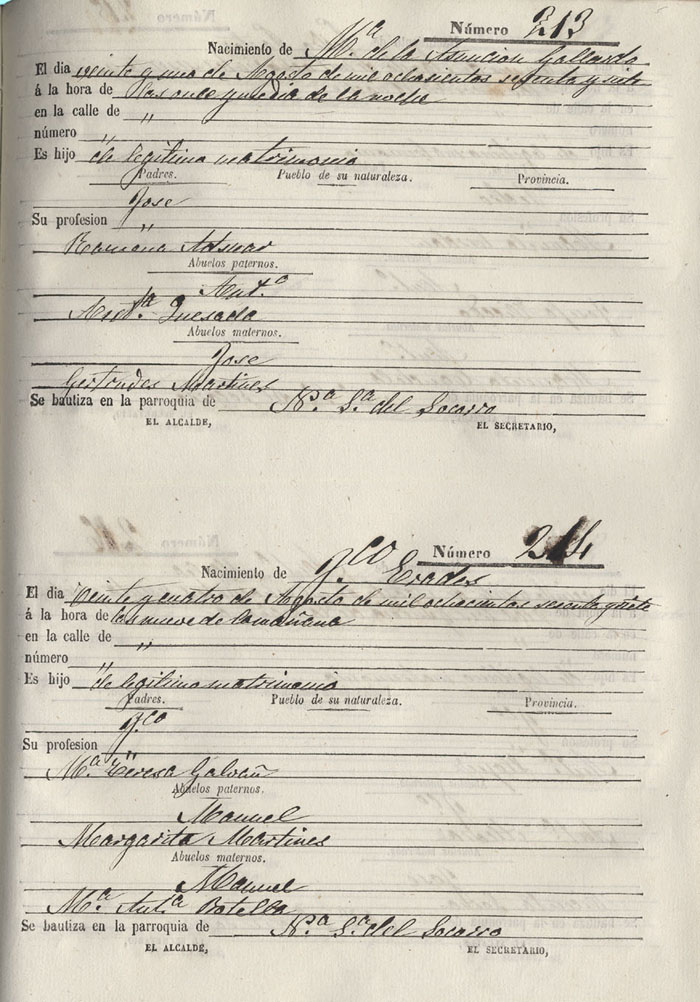 Número 213
Nacimiento de M.ª de la Asuncion Gallardo
El dia veinte y uno de Agosto de mil ochocientos sesenta y siete
á la hora de las once y media de la noche
en la calle de "
número "
Es hijo de legitimo matrimonio
Padres. Pueblo de su naturaleza. Provincia.
Jose
Su profesion "
Ramona
Abuelos paternos.
Ant.º
Ant.ª Quesada
Abuelos maternos.
Jose
Gertrudes Martines
Se bautiza en la parroquia de N.ª S.ª del Socorro
EL ALCALDE, EL SECRETARIO,
Número 214
Nacimiento de F.co Erades
El dia veinte y cuatro de Agosto de mil ochocientos sesenta y siete
á la hora de las nueve de la mañana
en la calle de "
número "
Es hijo de legitimo matrimonio
Padres. Pueblo de su naturaleza. Provincia.
F.co
Su profesion "
M.ª Teresa Galvañ
Abuelos paternos.
Manuel
Margarita Martines
Abuelos maternos.
Manuel
M.ª Ant.ª Botella
Se bautiza en la parroquia de N.ª S.ª del Socorro
EL ALCALDE, EL SECRETARIO,